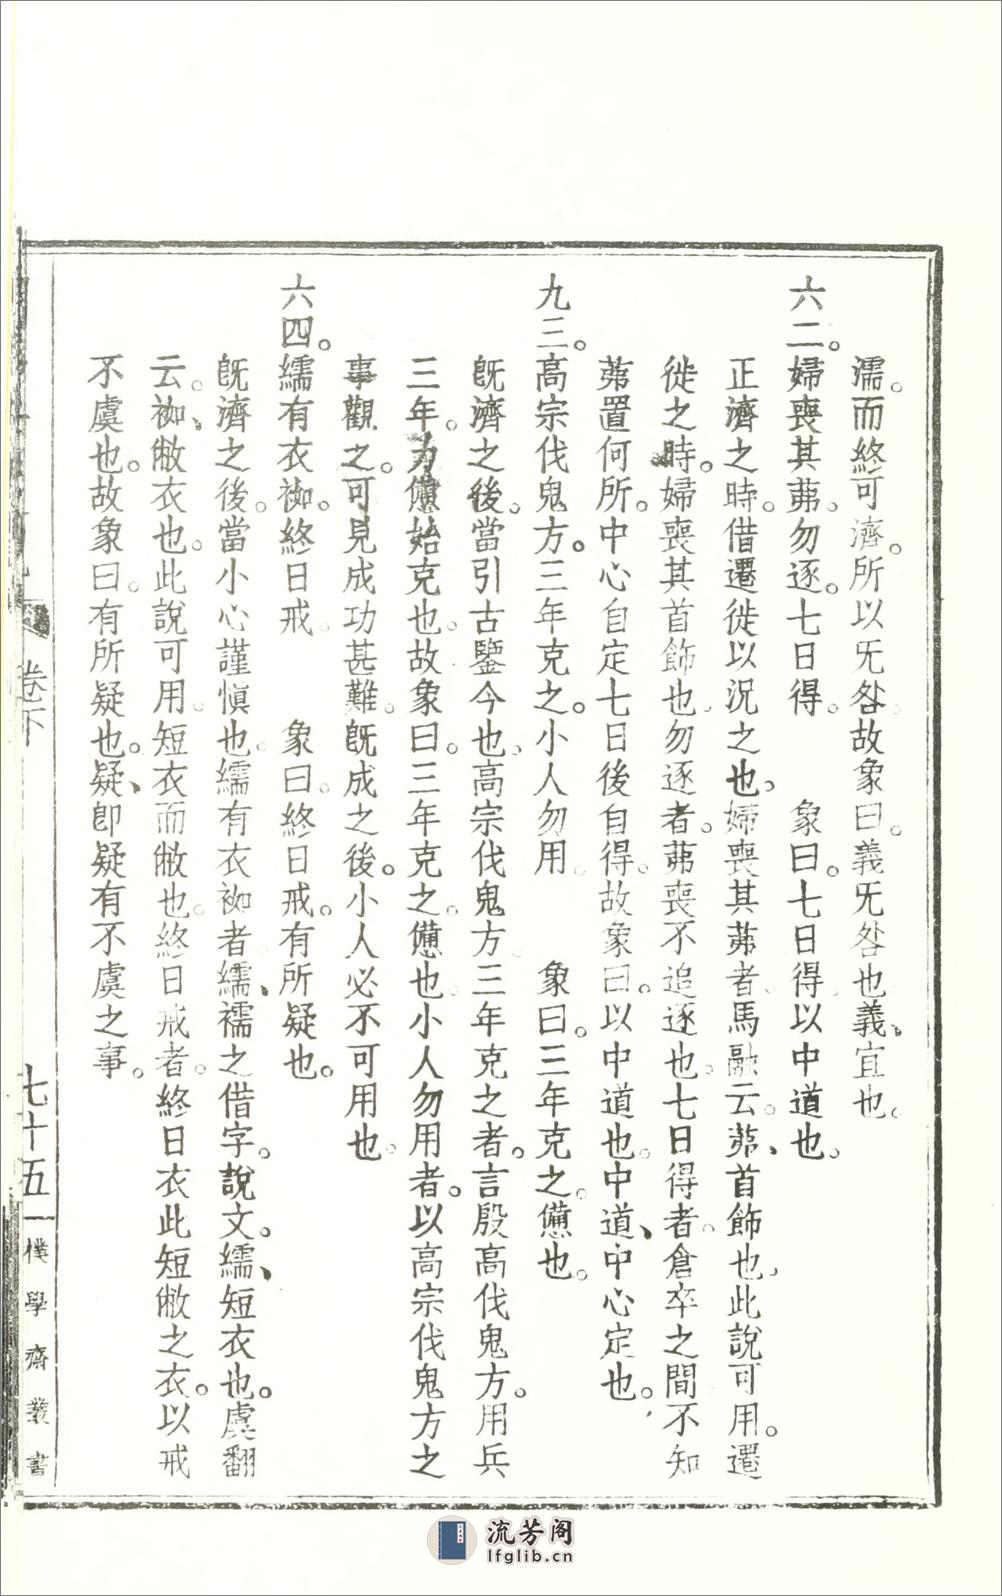 濡。而終可濟。所以旡咎。故象曰。義旡咎也。義、宜也。
六二。婦喪其茀。勿逐。七日得。　象曰。七日得。以中道也。
正濟之時。借遷徙以況之也。婦喪其茀者。馬融云。茀、首飾也。此說可用。遷
徙之時。婦喪其首飾也。勿逐者。茀喪不追逐也。七日得者。倉卒之間不知
茀置何所。中心自定。七日後自得。故象曰。以中道也。中道、中心定也。
九三。高宗伐鬼方。三年克之。小人勿用。　象曰。三年克之。憊也。
旣濟之後。當引古鑒今也。高宗伐鬼方三年克之者。言殷高伐鬼方。用兵
三年。力憊始克也。故象曰。三年克之。憊也。小人勿用者。以高宗伐鬼方之
事觀之。可見成功甚難。旣成之後。小人必不可用也。
六四。繻有衣袽。終日戒　象曰。終日戒。有所疑也。
旣濟之後。當小心謹愼也。繻有衣袽者。繻、襦之借字。說文。繻、短衣也。虞翻
云。袽、敝衣也。此說可用。短衣而敝也。終日戒者。終日衣此短敝之衣。以戒
不虞也。故象曰。有所疑也。疑、卽疑有不虞之事。
卷下
七十五
樸學齋叢書
流芳阁
lfglib.cn